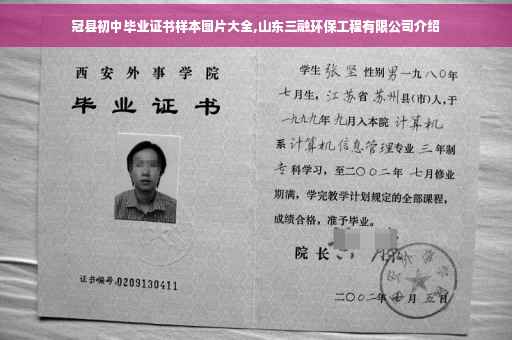 冠县初中毕业证书样本图片大全,山东三融环保工程有限公司介绍
西安外事学院
毕业证书
证书编号:0209130411
学生 张坚 性别男 一九八〇年
七月生, 江苏省 苏州县(市)人,于
一九九九年 九月入本院 计算机
系 计算机信息管理专业 三 年制
专 科学习,至二〇〇二年 七月修业
期满,学完教学计划规定的全部课程,
成绩合格,准予毕业。
院长
二〇〇二年 七 月 五 日